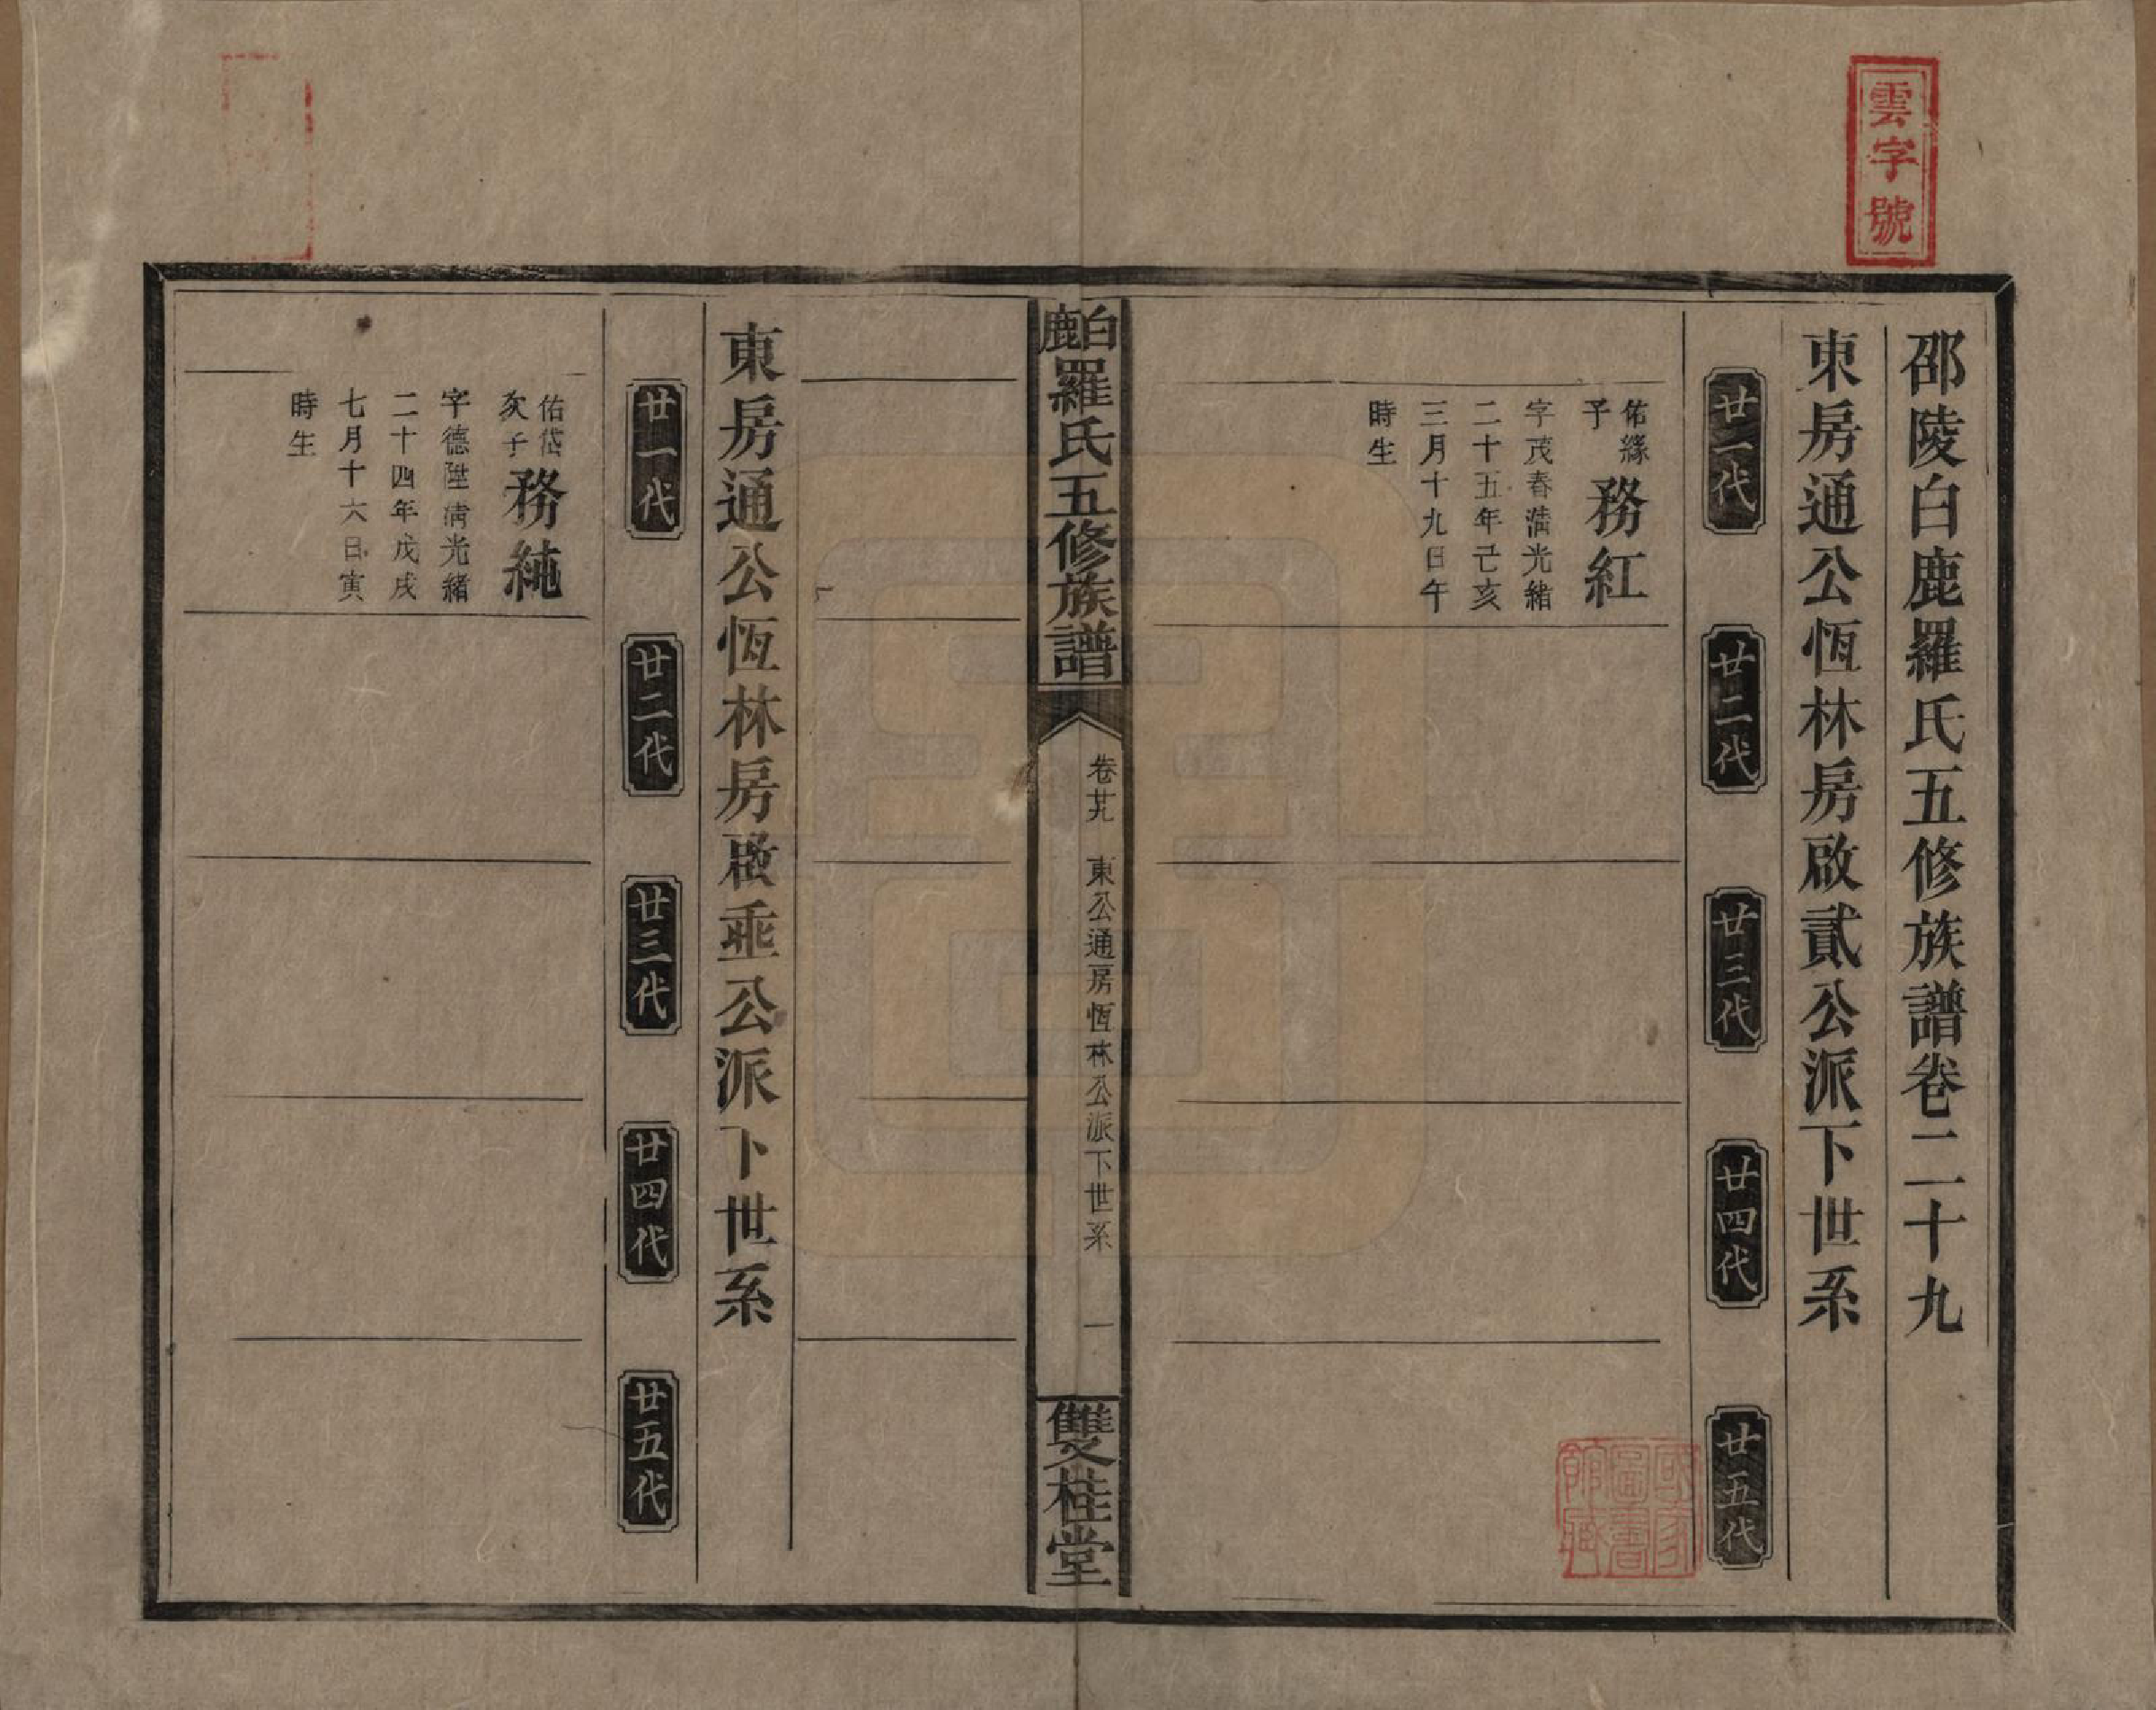 雲字號
邵陵白鹿羅氏五修族譜卷二十九
東房通公恆林房啟貳公派下世系
廿一代
廿二代
廿三代
廿四代
廿五代
佑緣
子
務紅
字茂春清光緒
二十五年己亥
三月十九日午
時生
國家
圖書
館藏
白鹿羅氏五修族譜
卷廿九 東公通房恆林公派下世系 一
雙桂堂
東房通公恆林房啟垂公派下世系
廿一代
廿二代
廿三代
廿四代
廿五代
佑岱
次子
務純
字德陞清光緒
二十四年戊戌
七月十六日寅
時生